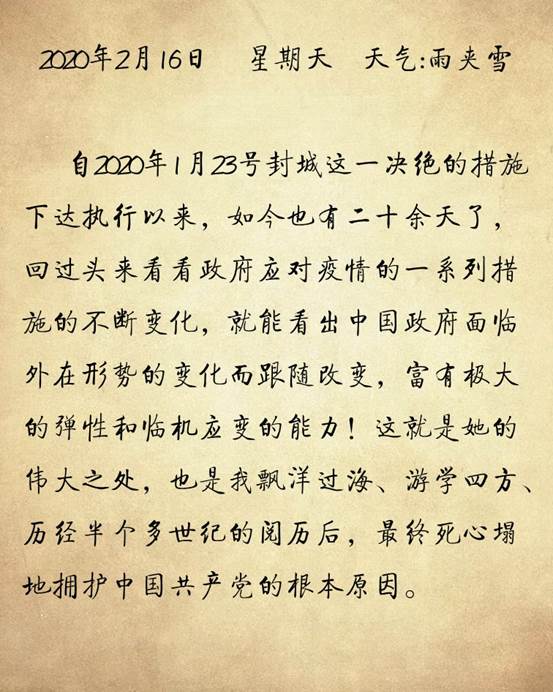 2020年2月16日 星期天 天气:雨夹雪
自2020年1月23号封城这一决绝的措施
下达执行以来，如今也有二十余天了，
回过头来看看政府应对疫情的一系列措
施的不断变化，就能看出中国政府面临
外在形势的变化而跟随改变，富有极大
的弹性和临机应变的能力！这就是她的
伟大之处，也是我飘洋过海、游学四方、
历经半个多世纪的阅历后，最终死心塌
地拥护中国共产党的根本原因。